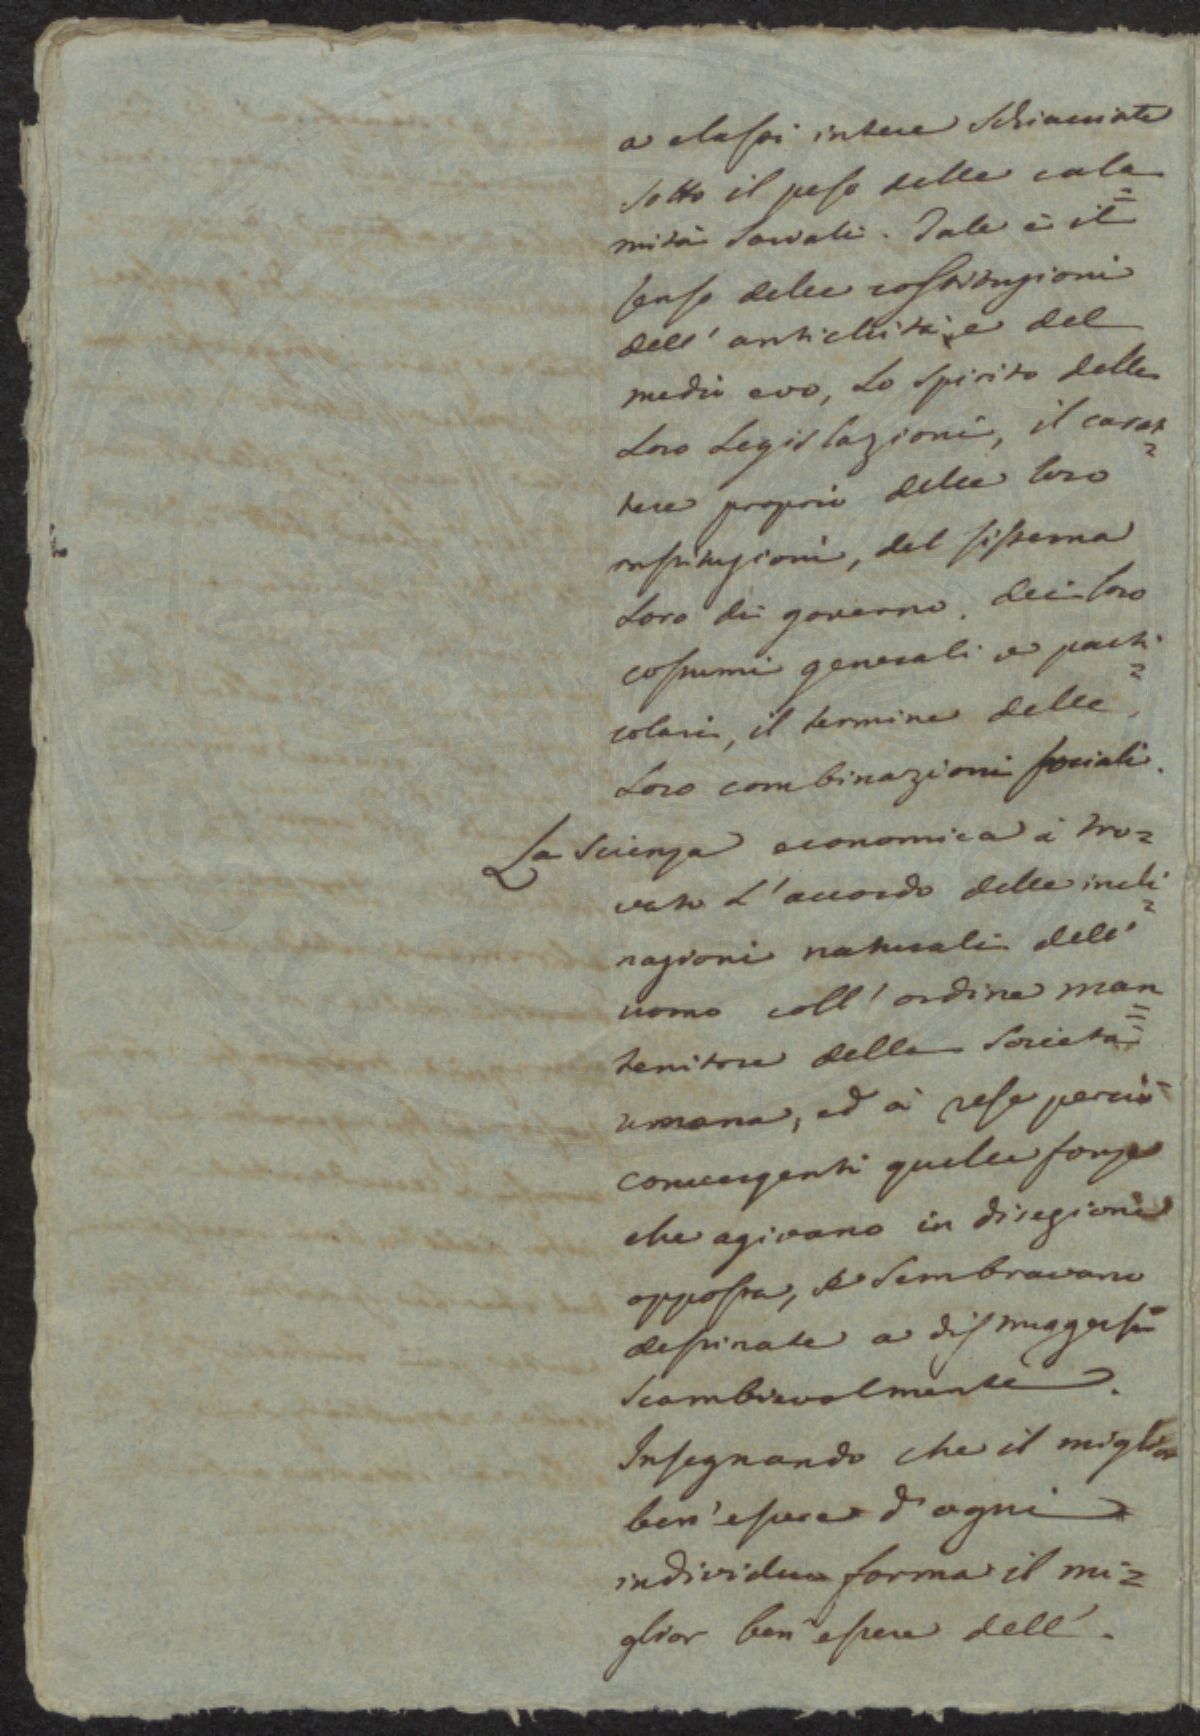 a classi intere schiacciate
sotto il peso delle cala=
mità sociali. Tale è il
senso delle costituzioni
dell'antichità, e del
medio evo, lo spirito delle
loro legislazioni, il carat=
tere proprio delle loro
instituzioni, del sistema
loro di governo, dei loro
costumi generali e parti=
colari, il termine delle
loro combinazioni sociali.
La scienza economica à tro=
vato l'accordo delle incli=
nazioni naturali dell'
uomo coll'ordine man=
tenitore della società
umana, ed à rese perciò
convergenti quelle forze
che agivano in direzione
opposta, e sembravano
destinate a distruggersi
scambievolmente.
Insegnando che il miglior
ben'essere d'ogni
individuo forma il mi=
glior ben'essere dell'